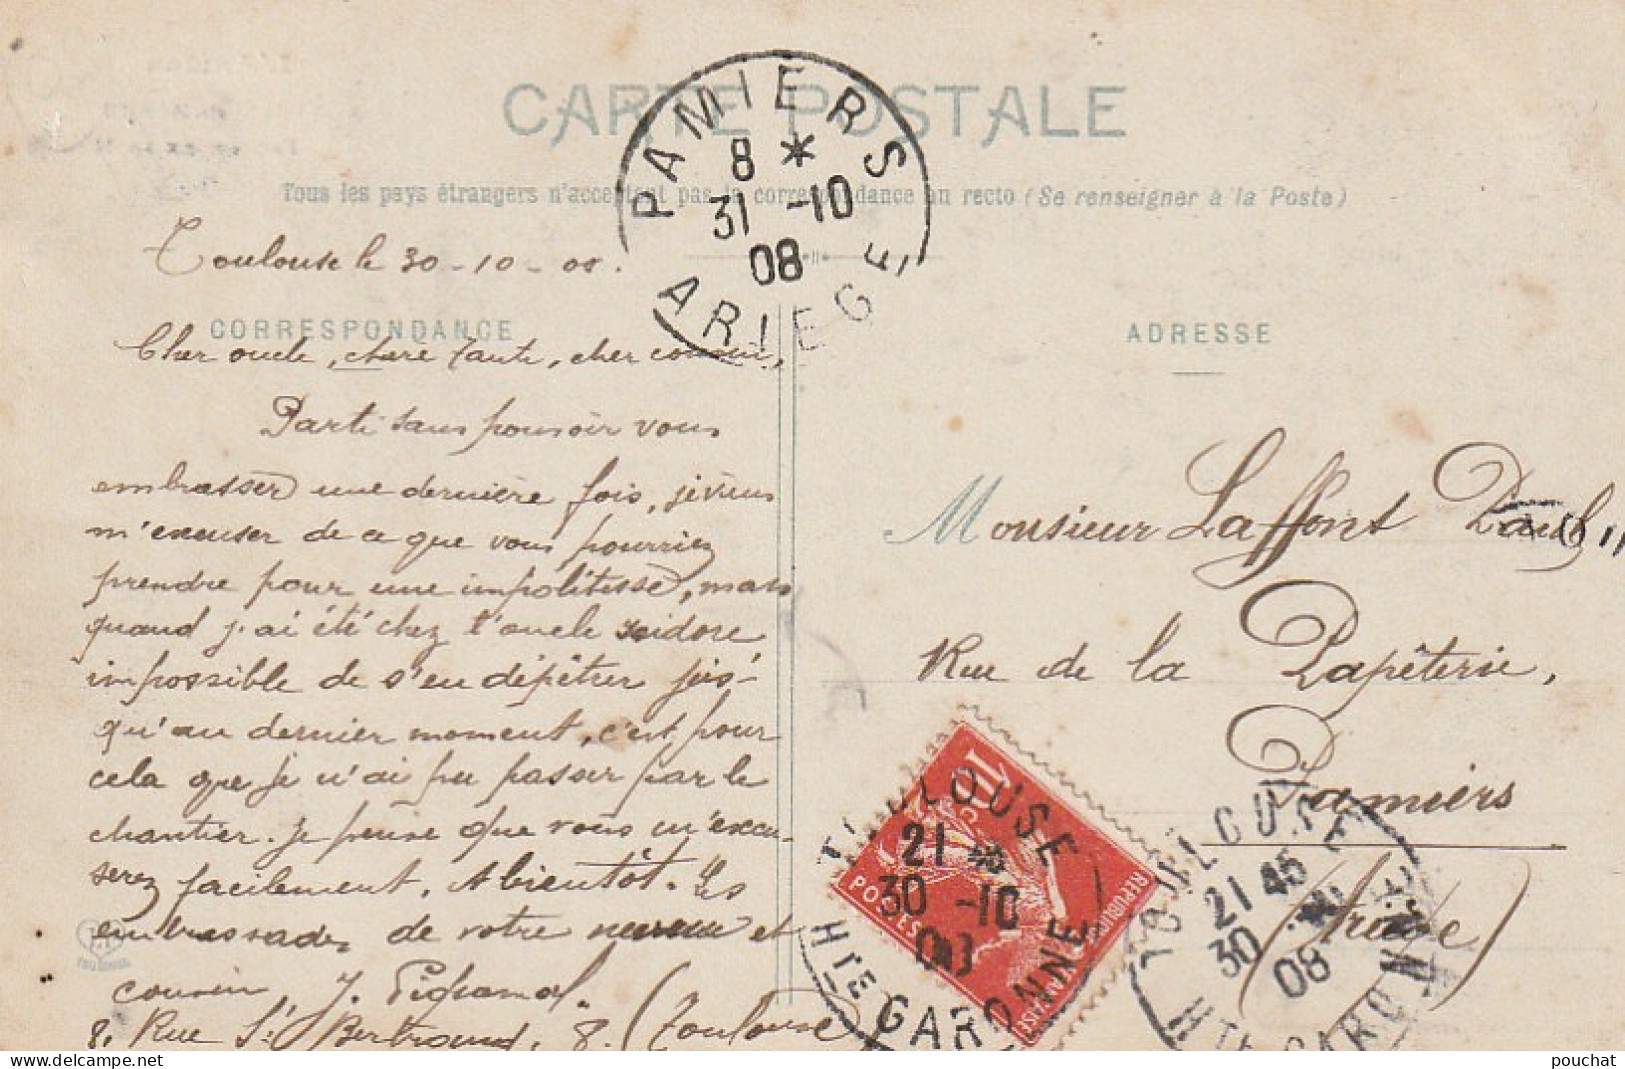 CARTE POSTALE
Tous les pays étrangers n'acceptent pas la correspondance au recto (Se renseigner à la Poste)
PAMIERS
8 *
31 -10
08
ARIEGE
Toulouse le 30-10-08.
CORRESPONDANCE
Cher oncle, chère tante, cher cousin,
Parti sans pouvoir vous
embrasser une dernière fois, je viens
m'excuser de ce que vous pourriez
prendre pour une impolitesse, mais
quand j'ai été chez l'oncle Isidore
impossible de s'en dépêtrer jus-
qu'au dernier moment, c'est pour
cela que je n'ai pu passer par le
chantier. Je pense que vous m'excu-
serez facilement. A bientôt. Les
embrassades de votre neveu et
cousin J.
8, Rue St Bertrand, 8. (Toulouse)
ADRESSE
Monsieur Laffont Paul
Rue de la Papèterie,
Pamiers
(Ariège)
10 c
POSTES
REPUBLIQUE FRANÇAISE
TOULOUSE
21 45
30 -10
08
HTE GARONNE
TOULOUSE
21 45
30 -10
08
HTE GARONNE
pouchat